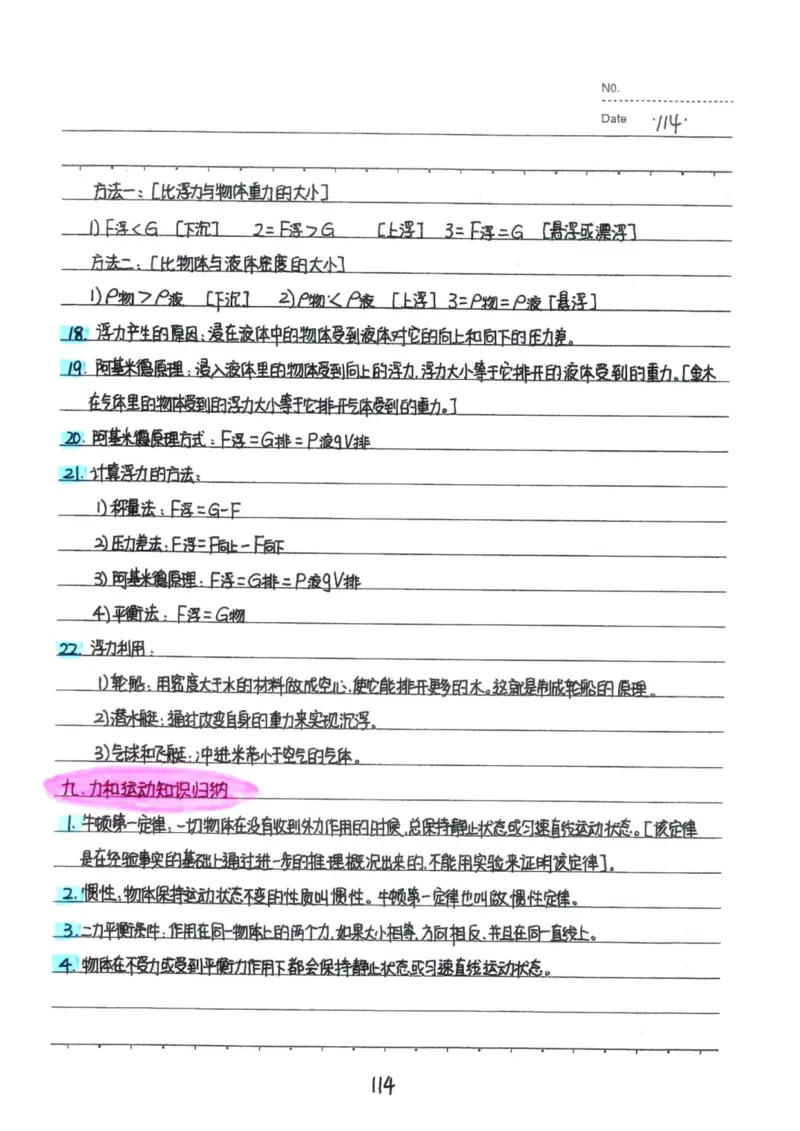 No.
Date ·114·
方法一:[比浮力与物体重力的大小]
1)F浮<G [下沉] 2=F浮>G [上浮] 3=F浮=G [悬浮或漂浮]
方法二:[比物体与液体密度的大小]
1)ρ物>ρ液 [下沉] 2)ρ物<ρ液 [上浮] 3=ρ物=ρ液[悬浮]
18. 浮力产生的原因:浸在液体中的物体受到液体对它的向上和向下的压力差。
19. 阿基米德原理:浸入液体里的物体受到向上的浮力,浮力大小等于它排开的液体受到的重力。[金木
在气体里的物体受到的浮力大小等于它排开气体受到的重力。]
20. 阿基米德原理方式:F浮=G排=P液gV排
21. 计算浮力的方法:
1)秤量法:F浮=G-F
2)压力差法:F浮=F向上-F向下
3)阿基米德原理:F浮=G排=P液gV排
4)平衡法:F浮=G物
22. 浮力利用:
1)轮船:用密度大于水的材料做成空心,使它能排开更多的水。这就是制成轮船的原理。
2)潜水艇:通过改变自身的重力来实现沉浮。
3)气球和飞艇:冲进米帝小于空气的气体。
九.力和运动知识归纳
1. 牛顿第一定律:一切物体在没有收到外力作用的时候,总保持静止状态或匀速直线运动状态。[该定律
是在经验事实的基础上通过进一步的推理概况出来的,不能用实验来证明该定律]。
2. 惯性:物体保持运动状态不变的性质叫惯性。牛顿第一定律也叫做惯性定律。
3. 二力平衡条件:作用在同一物体上的两个力,如果大小相等,方向相反、并且在同一直线上。
4. 物体在不受力或受到平衡力作用下都会保持静止状态或匀速直线运动状态。
114